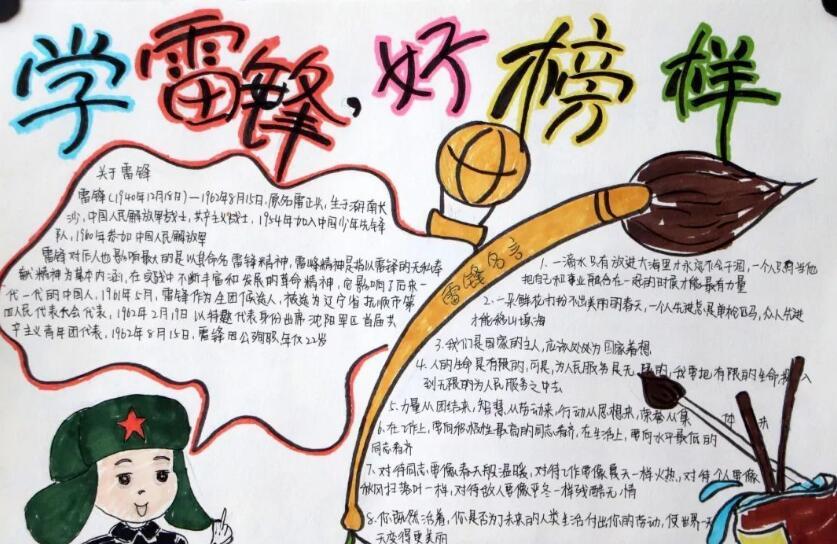 学雷锋,好榜样
关于雷锋
雷锋(1940年12月18日)—1962年8月15日,原名雷正兴,生于湖南长
沙,中国人民解放军战士,共产主义战士,1954年加入中国少年先锋
队,1960年参加中国人民解放军
雷锋对后人也影响最大的是以其命名雷锋精神,雷锋精神是指以雷锋的无私奉
献精神为基本内涵,在实践中不断丰富和发展的革命精神,它影响了后来一
代一代的中国人,1961年5月,雷锋作为全团候选人,被选为辽宁省抚顺市第
四人民代表大会代表,1962年2月19日以特邀代表身份出席沈阳军区首届共
产主义青年团代表,1962年8月15日,雷锋因公殉职年仅22岁
雷锋名言
1.一滴水只有放进大海里才永远不会干涸,一个人只有当他
把自己和事业融合在一起的时候才能最有力量
2.一朵鲜花打扮不出美丽的春天,一个人先进总是单枪匹马,众人先进
才能移山填海
3.我们是国家的主人,应该处处为国家着想
4.人的生命是有限的,可是,为人民服务是无限的,我要把有限的生命投入
到无限的为人民服务之中去
5.力量从团结来,智慧从劳动来,行动从思想来,荣誉从集体来
6.在工作上,要向积极性最高的同志看齐,在生活上,要向水平最低的
同志看齐
7.对待同志要像春天般温暖,对待工作要像夏天一样火热,对待个人要像
秋风扫落叶一样,对待敌人要像严冬一样残酷无情
8.你既然活着,你是否为了未来的人类生活付出你的劳动,使世界一天
天变得更美丽